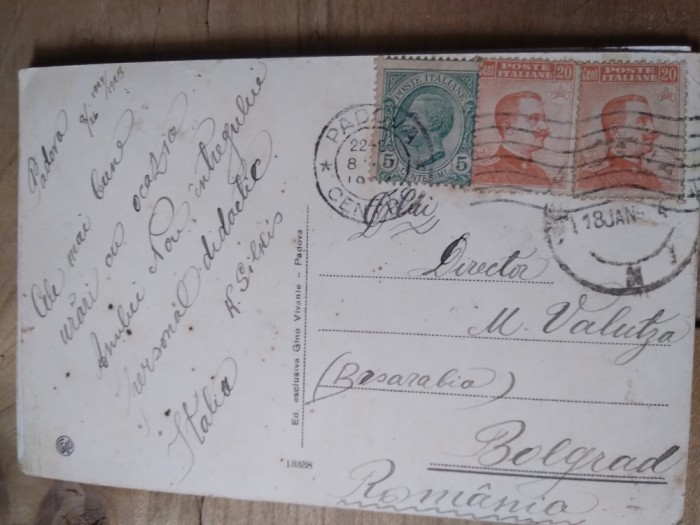 Padova
Cele mai bune
urări cu ocazia
Anului Nou întregului
personal didactic
A. Silvis
Italia
POSTE ITALIANE
5 5
CENTESIMI
Cent POSTE 20
ITALIANE
Cent POSTE 20
ITALIANE
PADOVA
22-
8
CENTRO
18 JAN
Ed. esclusiva Gino Vivante - Padova
18838
D-lui
Director
M. Valutza
(Basarabia)
Bolgrad
România